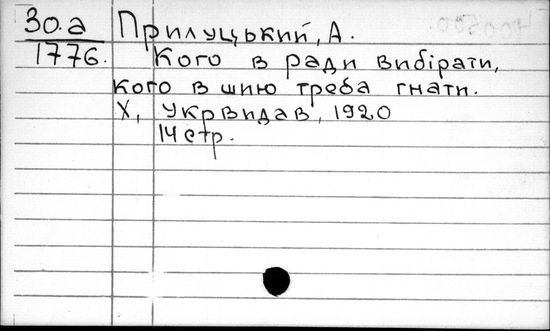 30.а Прилуцький, А.
1776. Кого в ради вибірати,
кого в шию треба гнати.
Х, Укрвидав, 1920
14 стр.